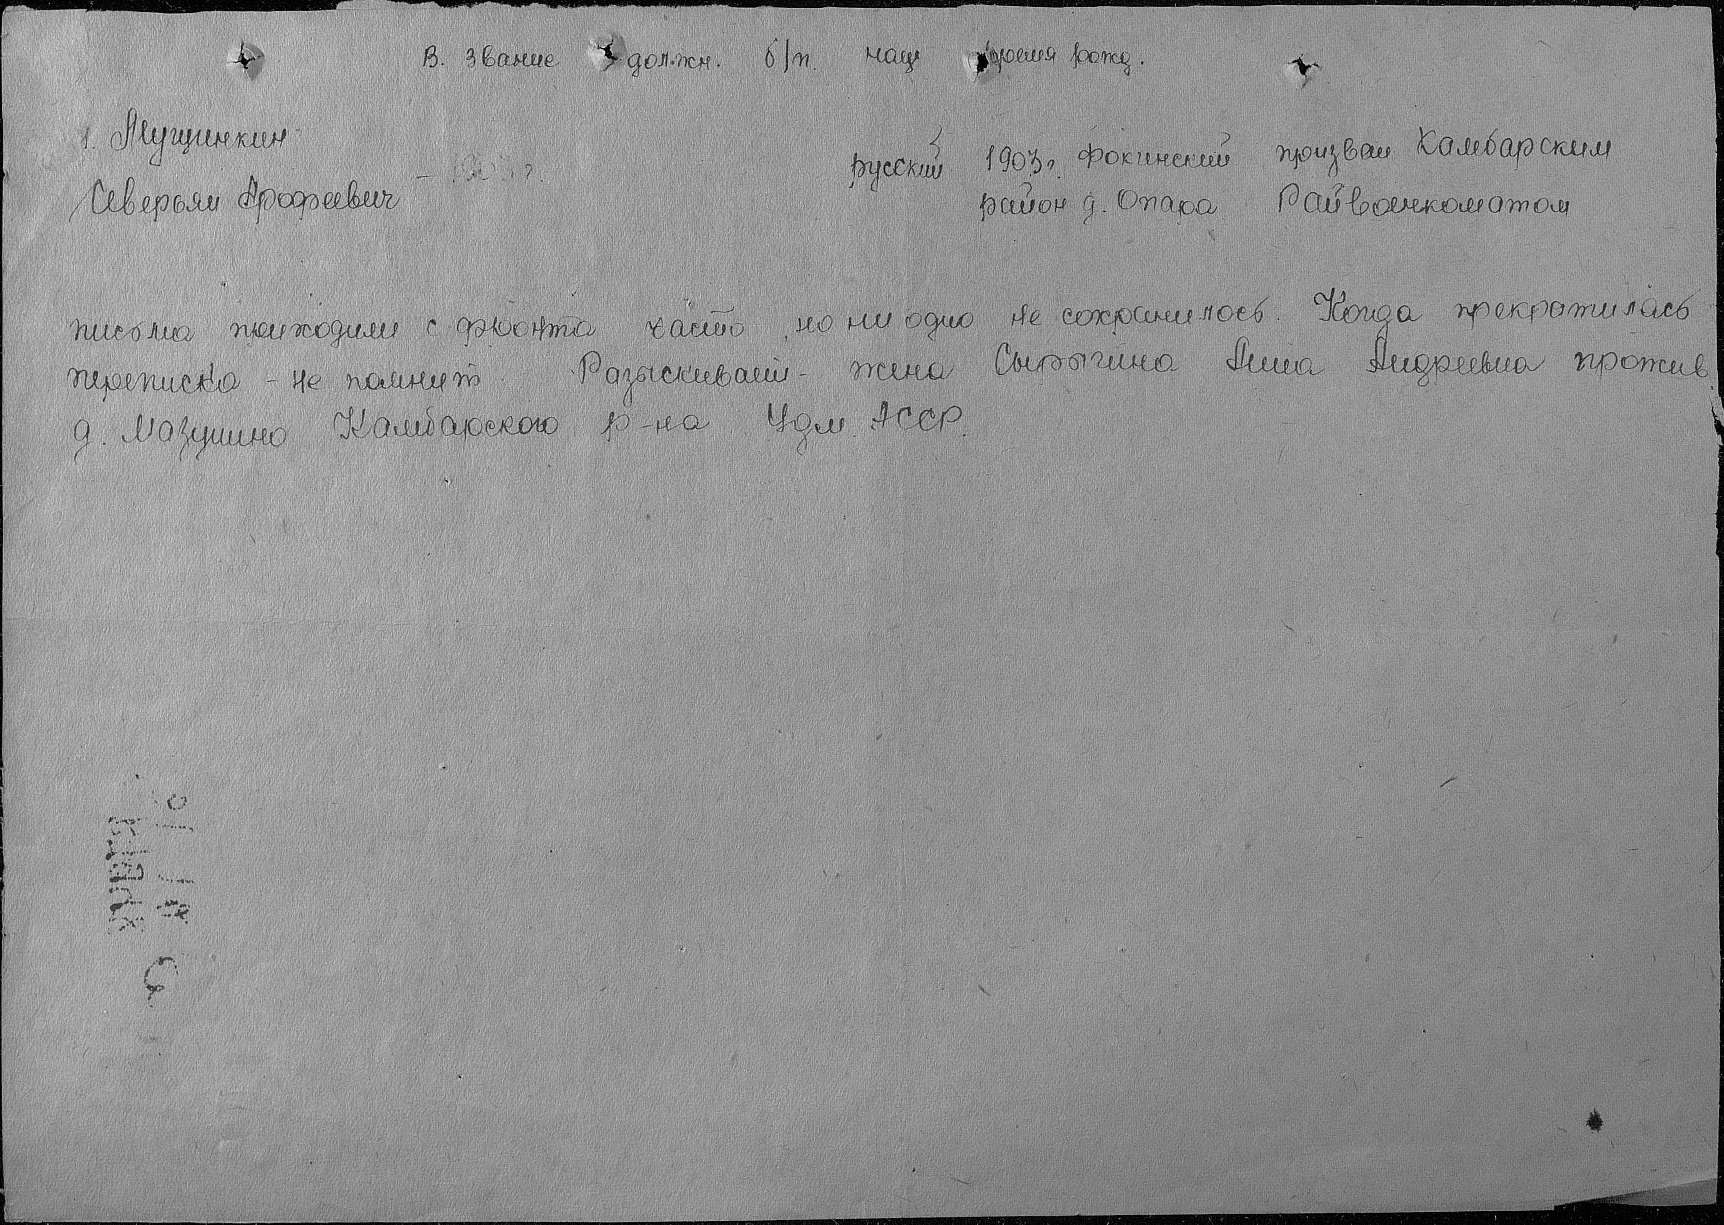 В. звание должн. б/п. нац время рожд.
1. Мущинкин
русский 1903г. Фокинский призван Камбарским
Северьян Ерофеевич
район д. Опара Райвоенкоматом
письма приходили с фронта часто, но ни одно не сохранилось. Когда прекратилась
переписка - не помнит. Разыскивает - жена Анна Андреевна прожив.
д. Мазунино Камбарского р-на Удм. АССР.